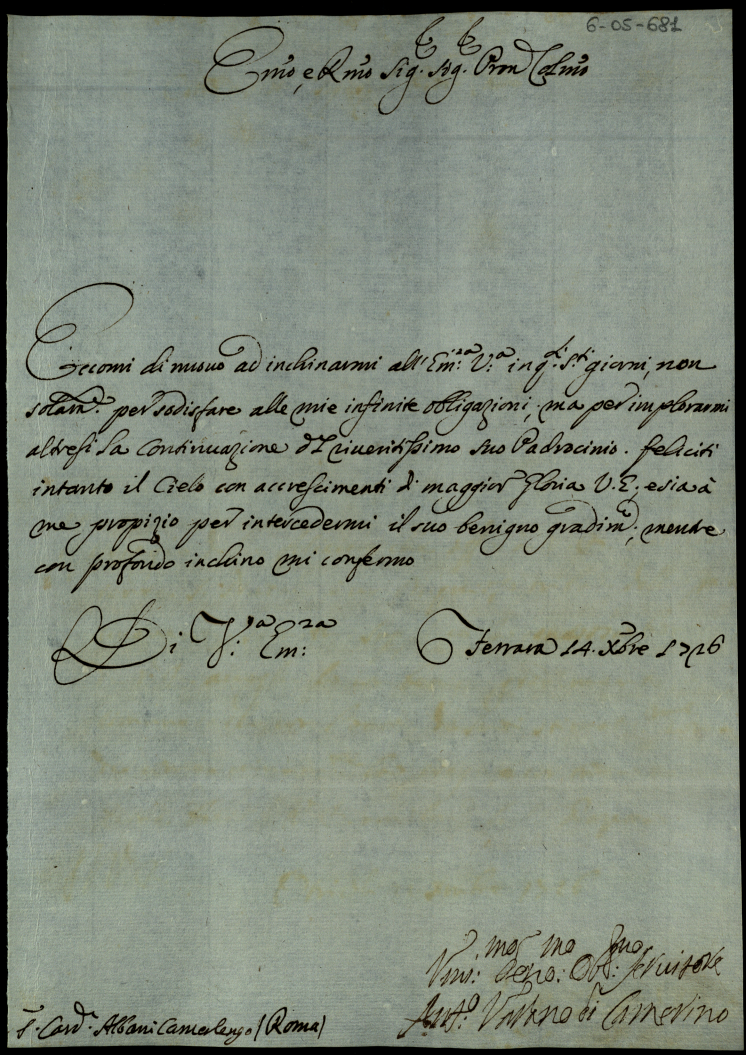 6-05-681
Em̃o, e Rm̃o Sig.r Sig.r Pron Colm̃o
Eccomi di nuovo ad inchinarmi all' Em:za V:a in q.ti S.ti giorni, non
solam.te per sodisfare alle mie infinite obligazioni, ma per implorarmi
altresi la Continuazione del riveritissimo suo Padrocinio. feliciti
intanto il Cielo con accrescimenti di maggior Gloria V. E:, e sia à
me propizio per intercedermi il suo benigno gradim:to, mentre
con profondo inchino mi confermo
Di V:a Em:za
Ferrara 14. Xbre 1726
Um:mo Devo:mo Ob:mo Servitore
Ant:o Varano di Camerino
S. Card.l Albani Camerlengo (Roma)